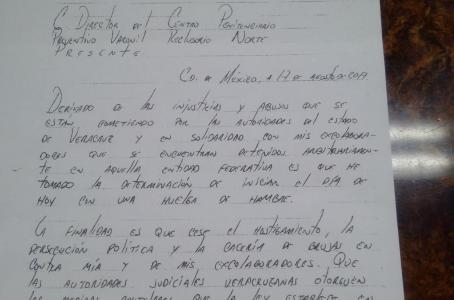 C. Director del Centro Penitenciario
Preventivo Varonil Reclusorio Norte
PRESENTE
Cd. de México, a 17 de agosto de 2017
Derivado de las injusticias y abusos que se
están cometiendo por las autoridades del estado
de Veracruz y en solidaridad con mis excolabora-
dores que se encuentran detenidos arbitrariamen-
te en aquella entidad federativa es que he
tomado la determinación de iniciar el día de
hoy con una huelga de hambre.
La finalidad es que cese el hostigamiento, la
persecución política y la cacería de brujas en
contra mía y de mis excolaboradores. Que
las autoridades judiciales veracruzanas otorguen
las medidas cautelares que la ley establece en